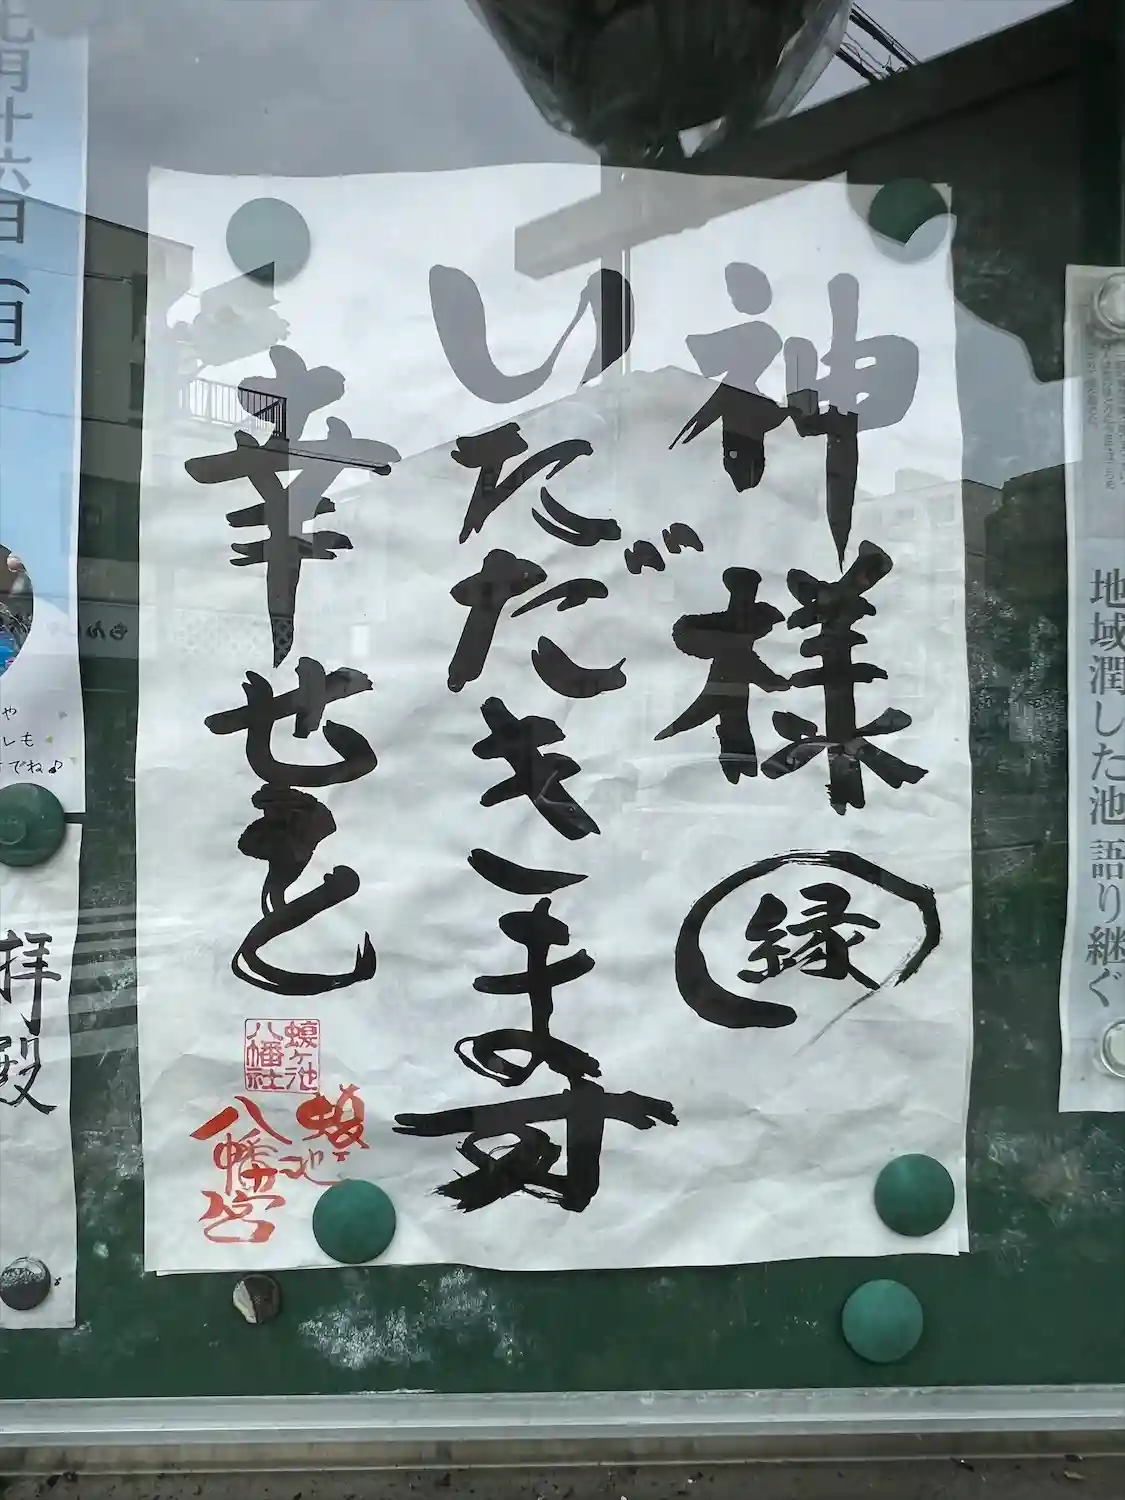 地域潤した池 語り継ぐ
神様 縁
いただきます
幸せを
蝮ヶ池
八幡社
蝮ヶ池
八幡宮
七月十六日(日)
や
レも
でね♪
拝殿